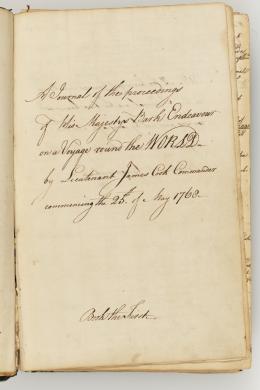 A Journal of the proceedings
of His Majestys Bark Endeavour
on a Voyage round the WORLD
by Lieutenant James Cook Commander
commencing the 25th of May 1768.
Book the First.